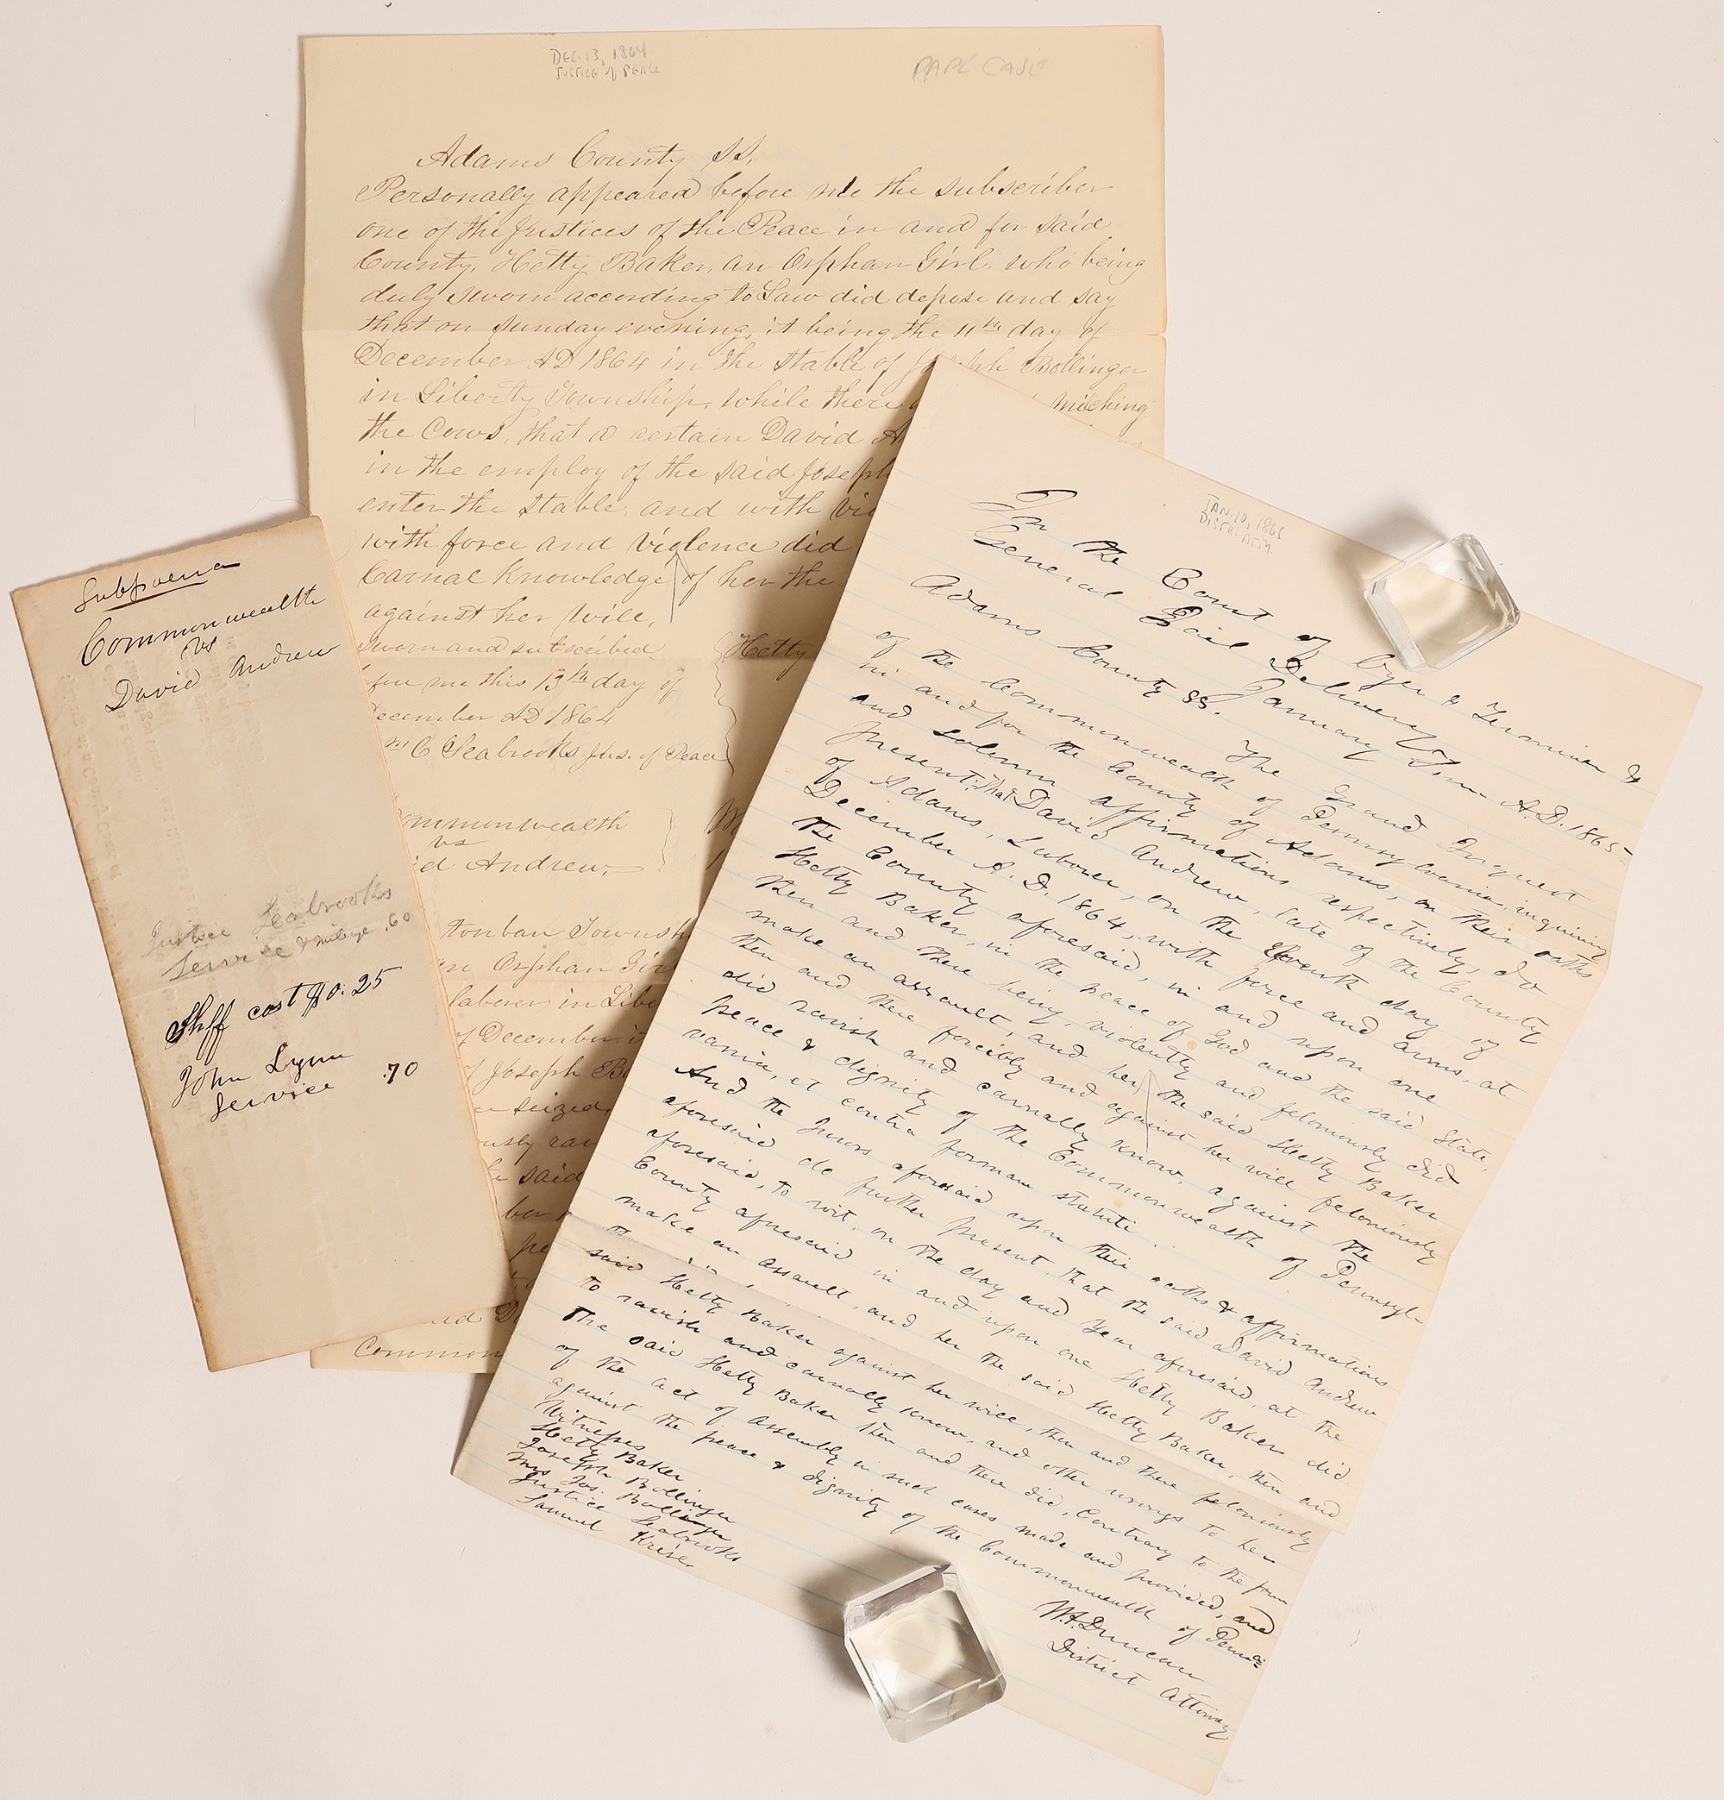 DEC-13, 1864
JUSTICE of PEACE
RAPE CASE
Adams County SS,
Personally appeared before me the subscriber
one of the Justices of the Peace in and for said
County, Hetty Baker, an Orphan Girl, who being
duly sworn according to Law did depose and say
that on Sunday evening, it being the 11th day of
December AD 1864 in the Stable of Joseph Bollinger
in Liberty Township, while there milking
the Cows, that a certain David A
in the employ of the said Joseph
enter the Stable, and with vi
with force and violence did
Carnal Knowledge of her the
against her will,
Sworn and subscribed
fore me this 13th day of
ecember AD 1864
m C Seabrooks Jus. of Peace
Hetty
ommonwealth
vs
d Andrew,
tonban Townsh
an Orphan Gir
laborer in Libe
of December i
of Joseph B
seized,
ously rav
said
ber
pe
Common
Subpoena
Commonwealth
vs
David Andrew
Justice Seabrooks
Service & mileage .60
Shff cost $0.25
John Lynn
Service .70
JAN-10, 1865
DISTR. ATTY.
In the Court of Oyer & Terminer &
General Jail Delivery
January Term A.D. 1865
Adams County SS.
The Grand Inquest
of the Commonwealth of Pennsylvania, inquiring
in and for the County of Adams, on their oaths
and solemn affirmations respectively, do
present: that David Andrew, late of the County
of Adams, Laborer, on the Eleventh day of
December A.D. 1864, with force and arms, at
the County aforesaid, in and upon one
Hetty Baker, in the peace of God and the said State,
then and there being, violently and feloniously did
make an assault, and her, the said Hetty Baker
then and there forcibly and against her will feloniously
did ravish and carnally know, against the
peace & dignity of the Commonwealth of Pennsyl-
vania, et contra formam statuti.
And the Jurors aforesaid upon their oaths & affirmations
aforesaid do further present, that the said David Andrew
aforesaid, to wit, on the day and Year aforesaid, at the
County aforesaid in and upon one Hetty Baker did
make an assault, and her the said Hetty Baker, then and
said Hetty Baker against her will, then and there feloniously
to ravish and carnally know, and other wrongs to her
the said Hetty Baker then and there did, Contrary to the form
of the act of Assembly in such cases made and provided, and
against the peace & dignity of the Commonwealth of Penna
Witnesses
Hetty Baker
Joseph Bollinger
Mrs Jos. Bollinger
Justice Seabrooks
Samuel Krise
W. A. Duncan
District Attorney